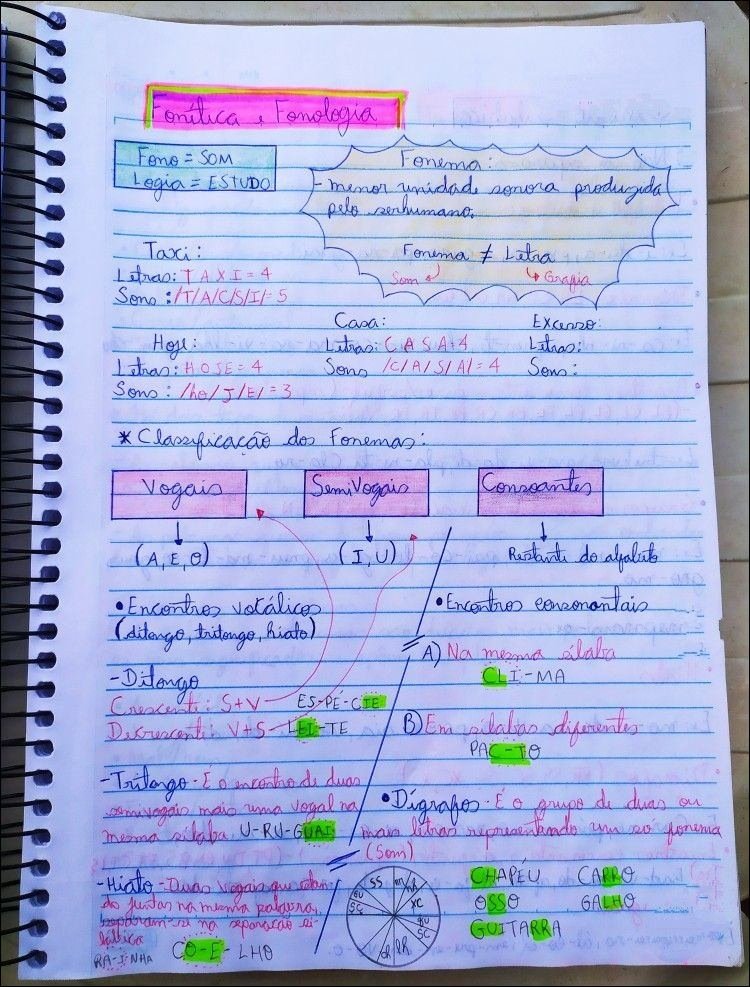 Fonética e Fonologia
Fono = SOM
Logia = ESTUDO
Fonema:
- menor unidade sonora produzida
pelo serhumano.
Fonema ≠ Letra
Som
Grafia
Taxi:
Letras: T A X I = 4
Sons : /T/A/C/S/I/ = 5
Hoje:
Letras: H O J E = 4
Sons : /ho/ J /E/ = 3
Casa:
Letras: C A S A = 4
Sons /C/A/S/A/ = 4
Excesso:
Letras:
Sons:
* Classificação dos Fonemas:
Vogais
SemiVogais
Consoantes
(A, E, O)
(I, U)
Restante do alfabeto
• Encontros vocálicos
(ditongo, tritongo, hiato)
- Ditongo
Crescente: S+V ES-PÉ-CIE
Decrescente: V+S LEI-TE
- Tritongo - É o encontro de duas
semivogais mais uma vogal na
mesma sílaba U-RU-GUAI
- Hiato - Duas vogais que estan-
do juntas na mesma palavra,
separam-se na separação si-
lábica
RA-I-NHA CO-E-LHO
• Encontros consonantais
A) Na mesma sílaba
CLI-MA
B) Em sílabas diferentes
PAC-TO
• Dígrafos - É o grupo de duas ou
mais letras representando um só fonema
(Som)
CHAPÉU CARRO
OSSO GALHO
GUITARRA
ss
nh
xc
qu
sc
lh
ch
sç
gu